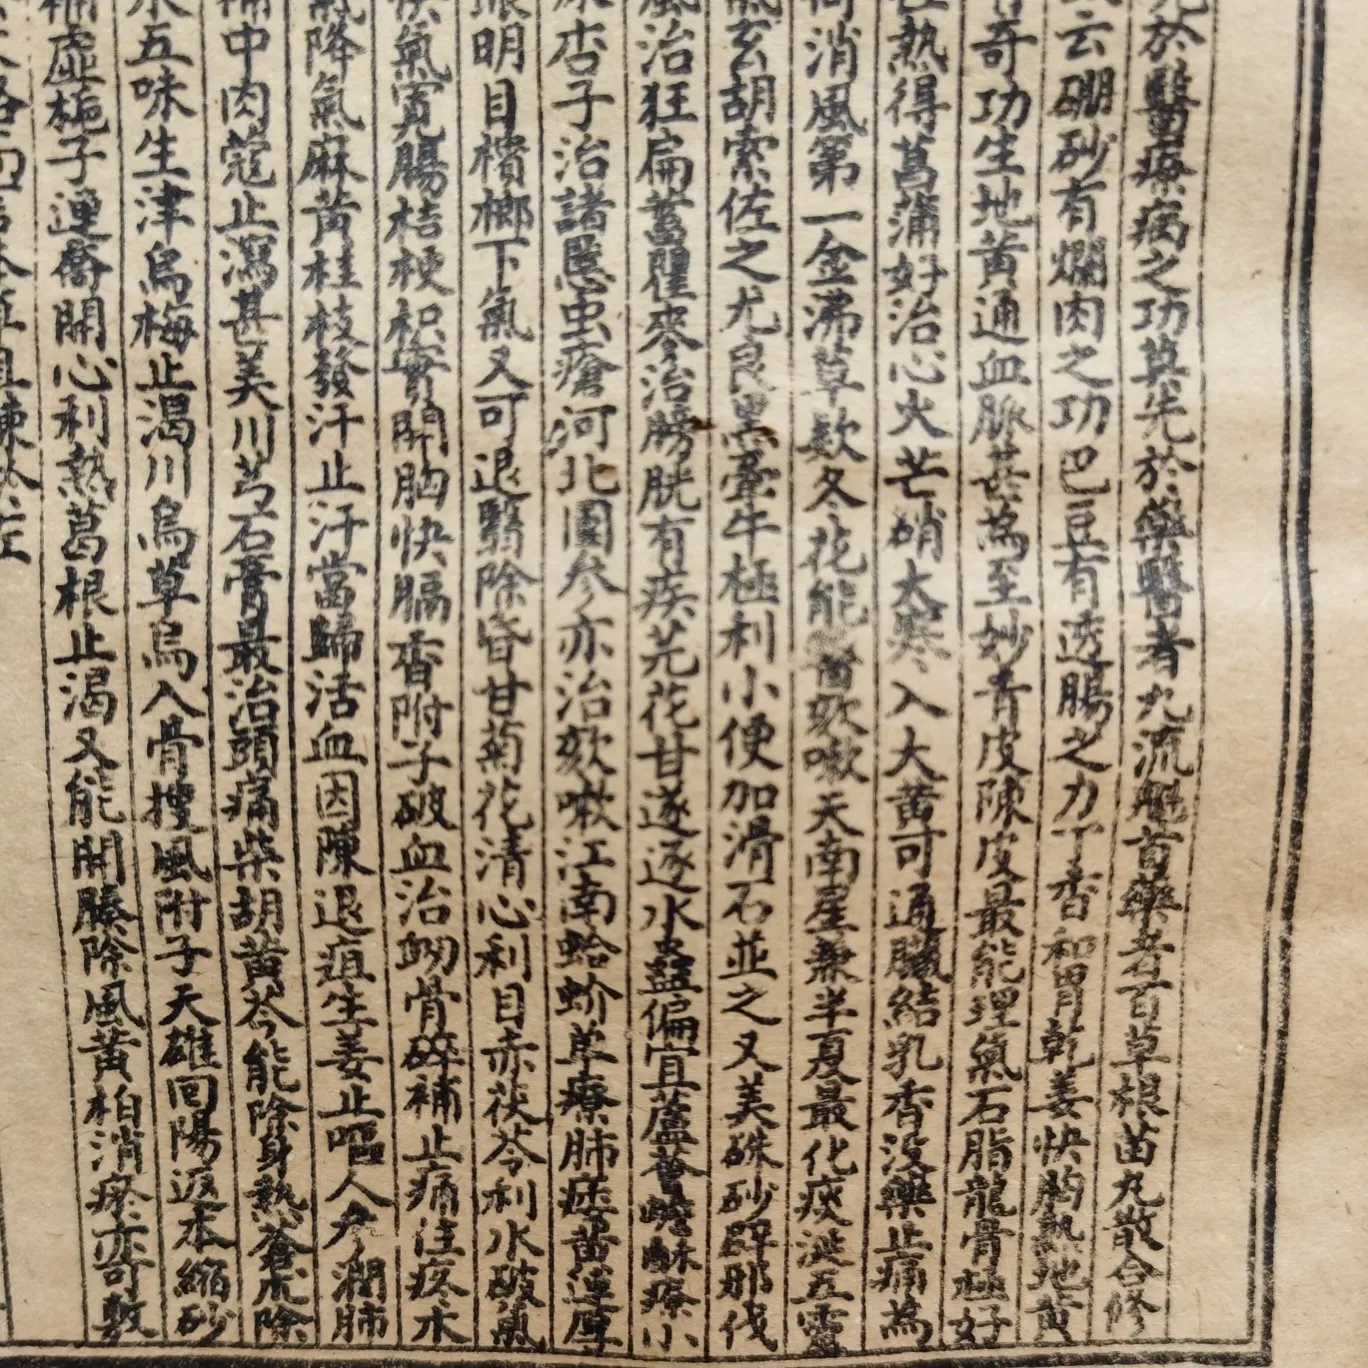 於醫療病之功莫先於藥醫者九流魁首藥者百草根苗丸散合修
云硼砂有爛肉之功巴豆有透腸之力丁香和胃乾姜快胸熟地黄
奇功生地黄通血脈甚為至妙青皮陳皮最能理氣石脂龍骨極好
熱得菖蒲好治心火芒硝大寒入大黄可通臟結乳香没藥止痛為
消風第一金沸草欵冬花能欬嗽天南星兼半夏最化痰涎五靈
玄胡索佐之尤良黒牽牛極利小便加滑石並之又美硃砂辟邪伐
治狂扁蓄瞿麥治膀胱有疾芫花甘遂逐水蠱偏宜蘆薈蟾酥療小
杏子治諸惡虫瘡河北園参亦治欬嗽江南蛤蚧草療肺痿黄連厚
眼明目檳榔下氣又可退翳除昏甘菊花清心利目赤茯苓利水破氣
氣寛腸桔梗枳實開胸快膈香附子破血治衂骨碎補止痛注疼木
降氣麻黄桂枝發汗止汗當歸活血因陳退疸生姜止嘔人参潤肺
中肉蔻止瀉甚美川芎石膏最治頭痛柴胡黄芩能除身熱蒼朮除
五味生津烏梅止渴川烏草烏入骨搜風附子天雄回陽返本縮砂
補虛梔子連喬開心利熱葛根止渴又能開腠除風黄柏消瘀亦可敷